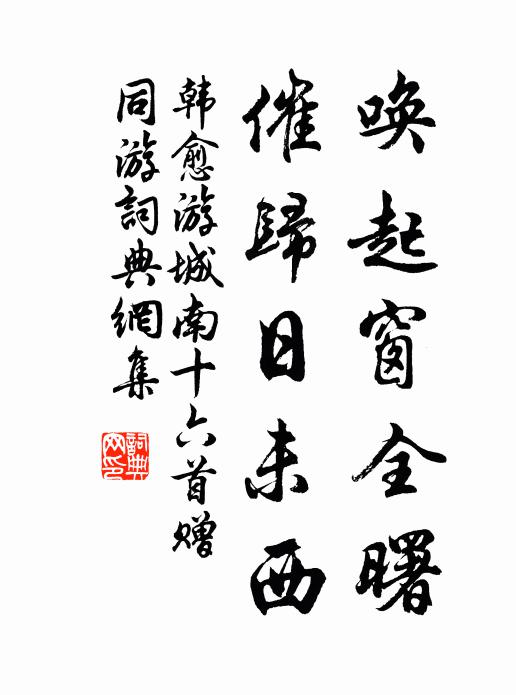 唤起窗全曙
催歸日未西
韩愈游城南十六首赠
同游詞典網集
詞典网印